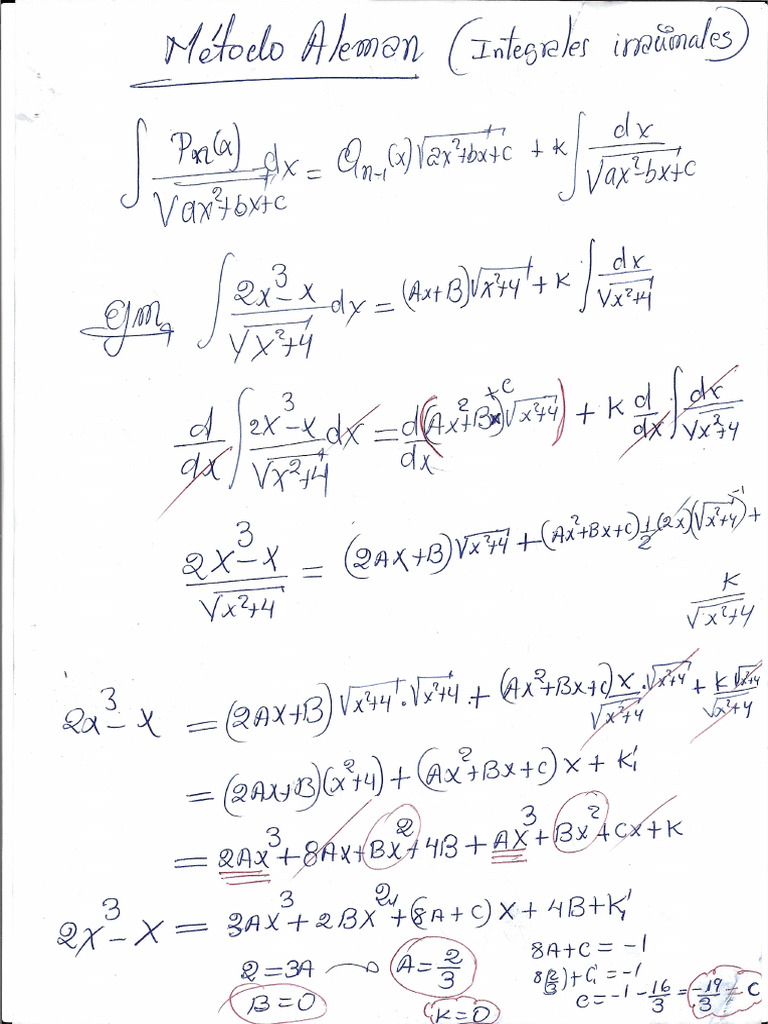 Método Aleman (Integrales irracionales)
∫ Pn(x)/√(ax²+bx+c) dx = Qn-1(x)√(ax²+bx+c) + k∫ dx/√(ax²-bx+c)
∫ (2x³-x)/√(x²+4) dx = (Ax+B)√(x²+4) + k∫ dx/√(x²+4)
d/dx ∫ (2x³-x)/√(x²+4) dx = d/dx (Ax²+Bx+C)√(x²+4) + k d/dx ∫ dx/√(x²+4)
(2x³-x)/√(x²+4) = (2Ax+B)√(x²+4) + (Ax²+Bx+C) 1/2 (2x)(√(x²+4))⁻¹ +
K/√(x²+4)
2x³-x = (2Ax+B)√(x²+4)·√(x²+4) + (Ax²+Bx+C) x/√(x²+4) ·√(x²+4) + k√(x²+4)/√(x²+4)
= (2Ax+B)(x²+4) + (Ax²+Bx+C)x + K
= 2Ax³+8Ax+Bx²+4B+Ax³+Bx²+Cx+K
2x³-x = 3Ax³+2Bx²+(8A+C)x+4B+K
2=3A → A=2/3
B=0
K=0
8A+C=-1
8(2/3)+C=-1
C=-1-16/3=-19/3=C